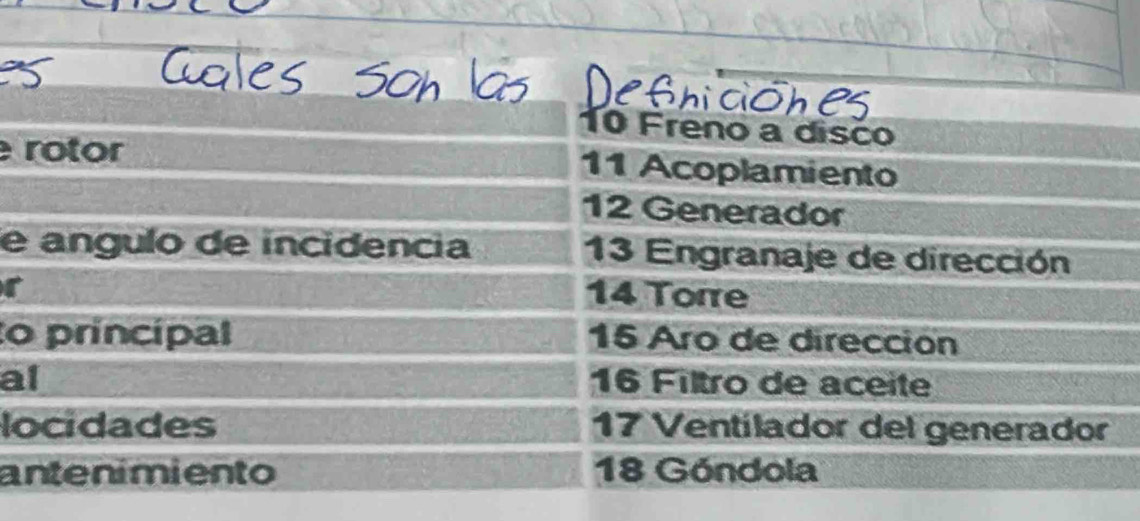 es Cuales son las Definiciones
10 Freno a disco
e rotor
11 Acoplamiento
12 Generador
e angulo de incidencia
13 Engranaje de dirección
r
14 Torre
to principal
15 Aro de direccion
al
16 Filtro de aceite
locidades
17 Ventilador del generador
antenimiento
18 Góndola